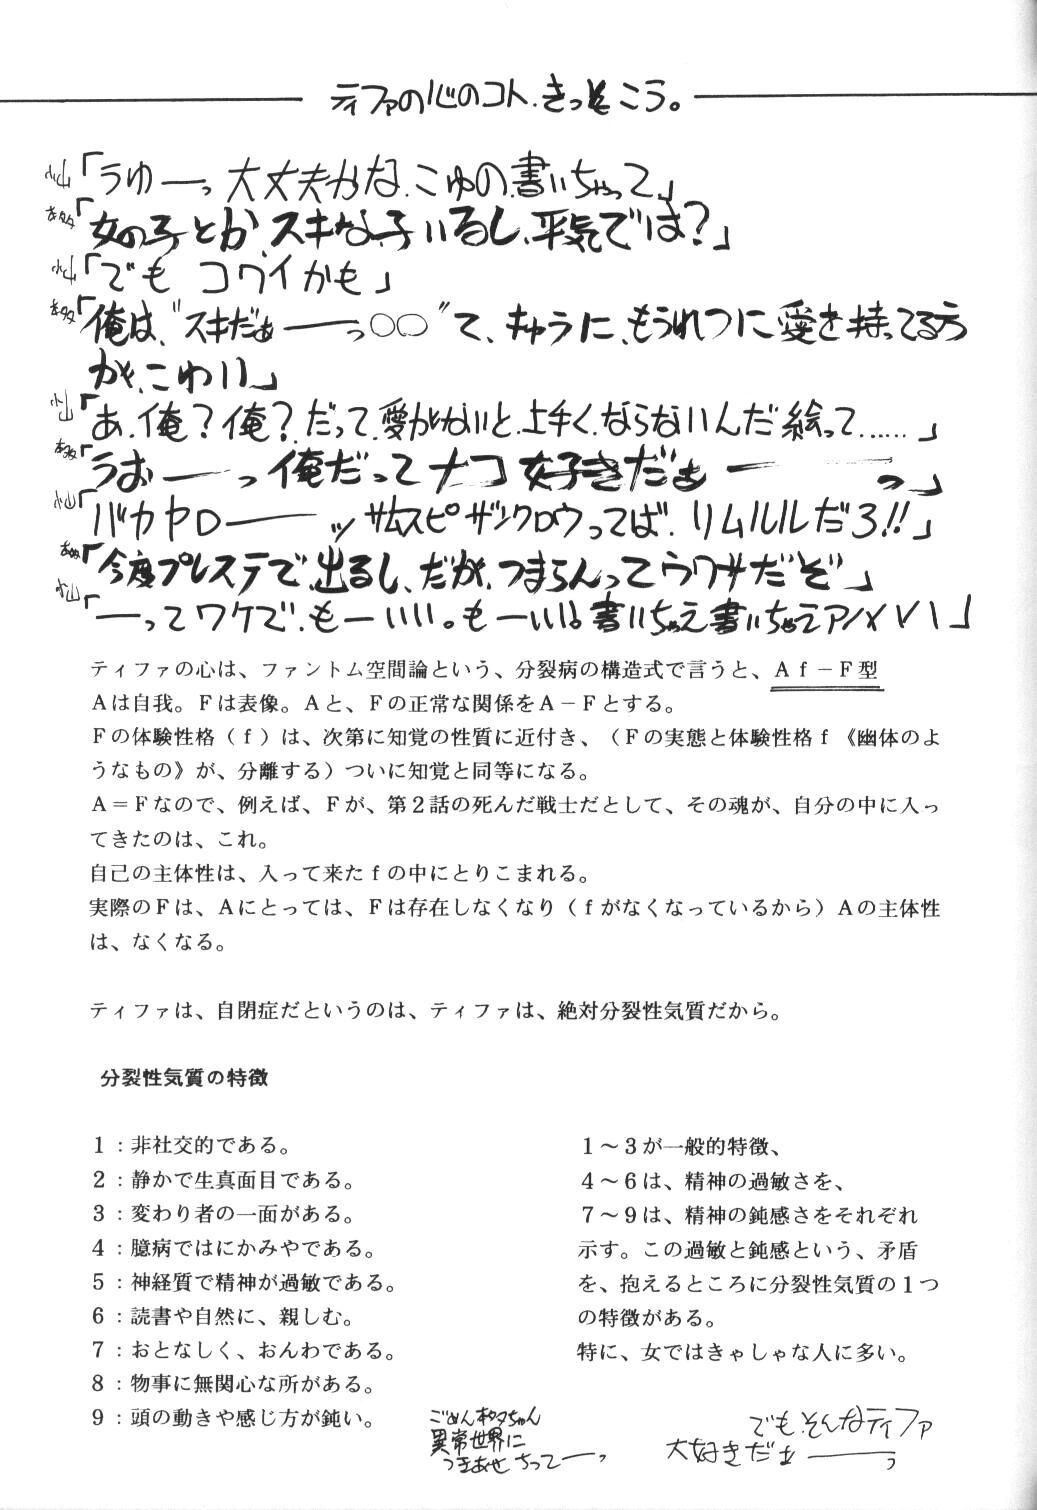 ティファの心のコト.きっそこう。
小山「うゆーっ大丈夫かな.こゆの書いちゃって」
「女の子とか、スキな子いるし、平気では?」
小山「でも コワイかも」
「俺は、"スキだぁーーっ○○"て、キャラに、もうれつに愛を持ってる方
が、こわい」
小山「あ.俺?俺?.だって.愛がないと.上手く.ならないんだ絵って……」
「うおーーっ俺だってナコ好きだぁーーーっ」
小山「バカヤローーッサムスピザンクロウってば.リムルルだろ!!」
「今度プレステで、出るし、だが、つまらんってウワサだぞ」
小山「ーってワケで.もーいい。もーいい。書いちゃえ書いちゃえ
ティファの心は、ファントム空間論という、分裂病の構造式で言うと、Ａｆ－Ｆ型
Ａは自我。Ｆは表像。Ａと、Ｆの正常な関係をＡ－Ｆとする。
Ｆの体験性格（ｆ）は、次第に知覚の性質に近付き、（Ｆの実態と体験性格ｆ《幽体のよ
うなもの》が、分離する）ついに知覚と同等になる。
Ａ＝Ｆなので、例えば、Ｆが、第２話の死んだ戦士だとして、その魂が、自分の中に入っ
てきたのは、これ。
自己の主体性は、入って来たｆの中にとりこまれる。
実際のＦは、Ａにとっては、Ｆは存在しなくなり（ｆがなくなっているから）Ａの主体性
は、なくなる。
ティファは、自閉症だというのは、ティファは、絶対分裂性気質だから。
分裂性気質の特徴
１：非社交的である。
２：静かで生真面目である。
３：変わり者の一面がある。
４：臆病ではにかみやである。
５：神経質で精神が過敏である。
６：読書や自然に、親しむ。
７：おとなしく、おんわである。
８：物事に無関心な所がある。
９：頭の動きや感じ方が鈍い。
１～３が一般的特徴、
４～６は、精神の過敏さを、
７～９は、精神の鈍感さをそれぞれ
示す。この過敏と鈍感という、矛盾
を、抱えるところに分裂性気質の１つ
の特徴がある。
特に、女ではきゃしゃな人に多い。
ごめん ちゃん
異常世界に
つきあせちってーっ
でも.そんなティファ
大好きだぁーーっ